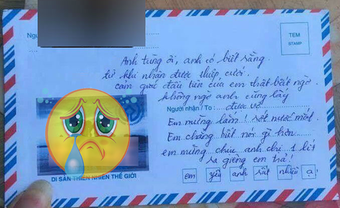 TEM
STAMP
Anh từng ơi, anh có biết rằng
từ khi nhận được thiệp cưới.
cảm giác đầu tiên của em thật bất ngờ.
không ngờ anh cũng lấy
Người nhận / To : được vợ
Em mừng lắm! rớt nước mắt.
Em chẳng biết nói gì hơn
em mừng chúc anh chị 1 lít
ra giêng em trả!
DI SẢN THIÊN NHIÊN THẾ GIỚI
em yêu anh rất nhiều ạ